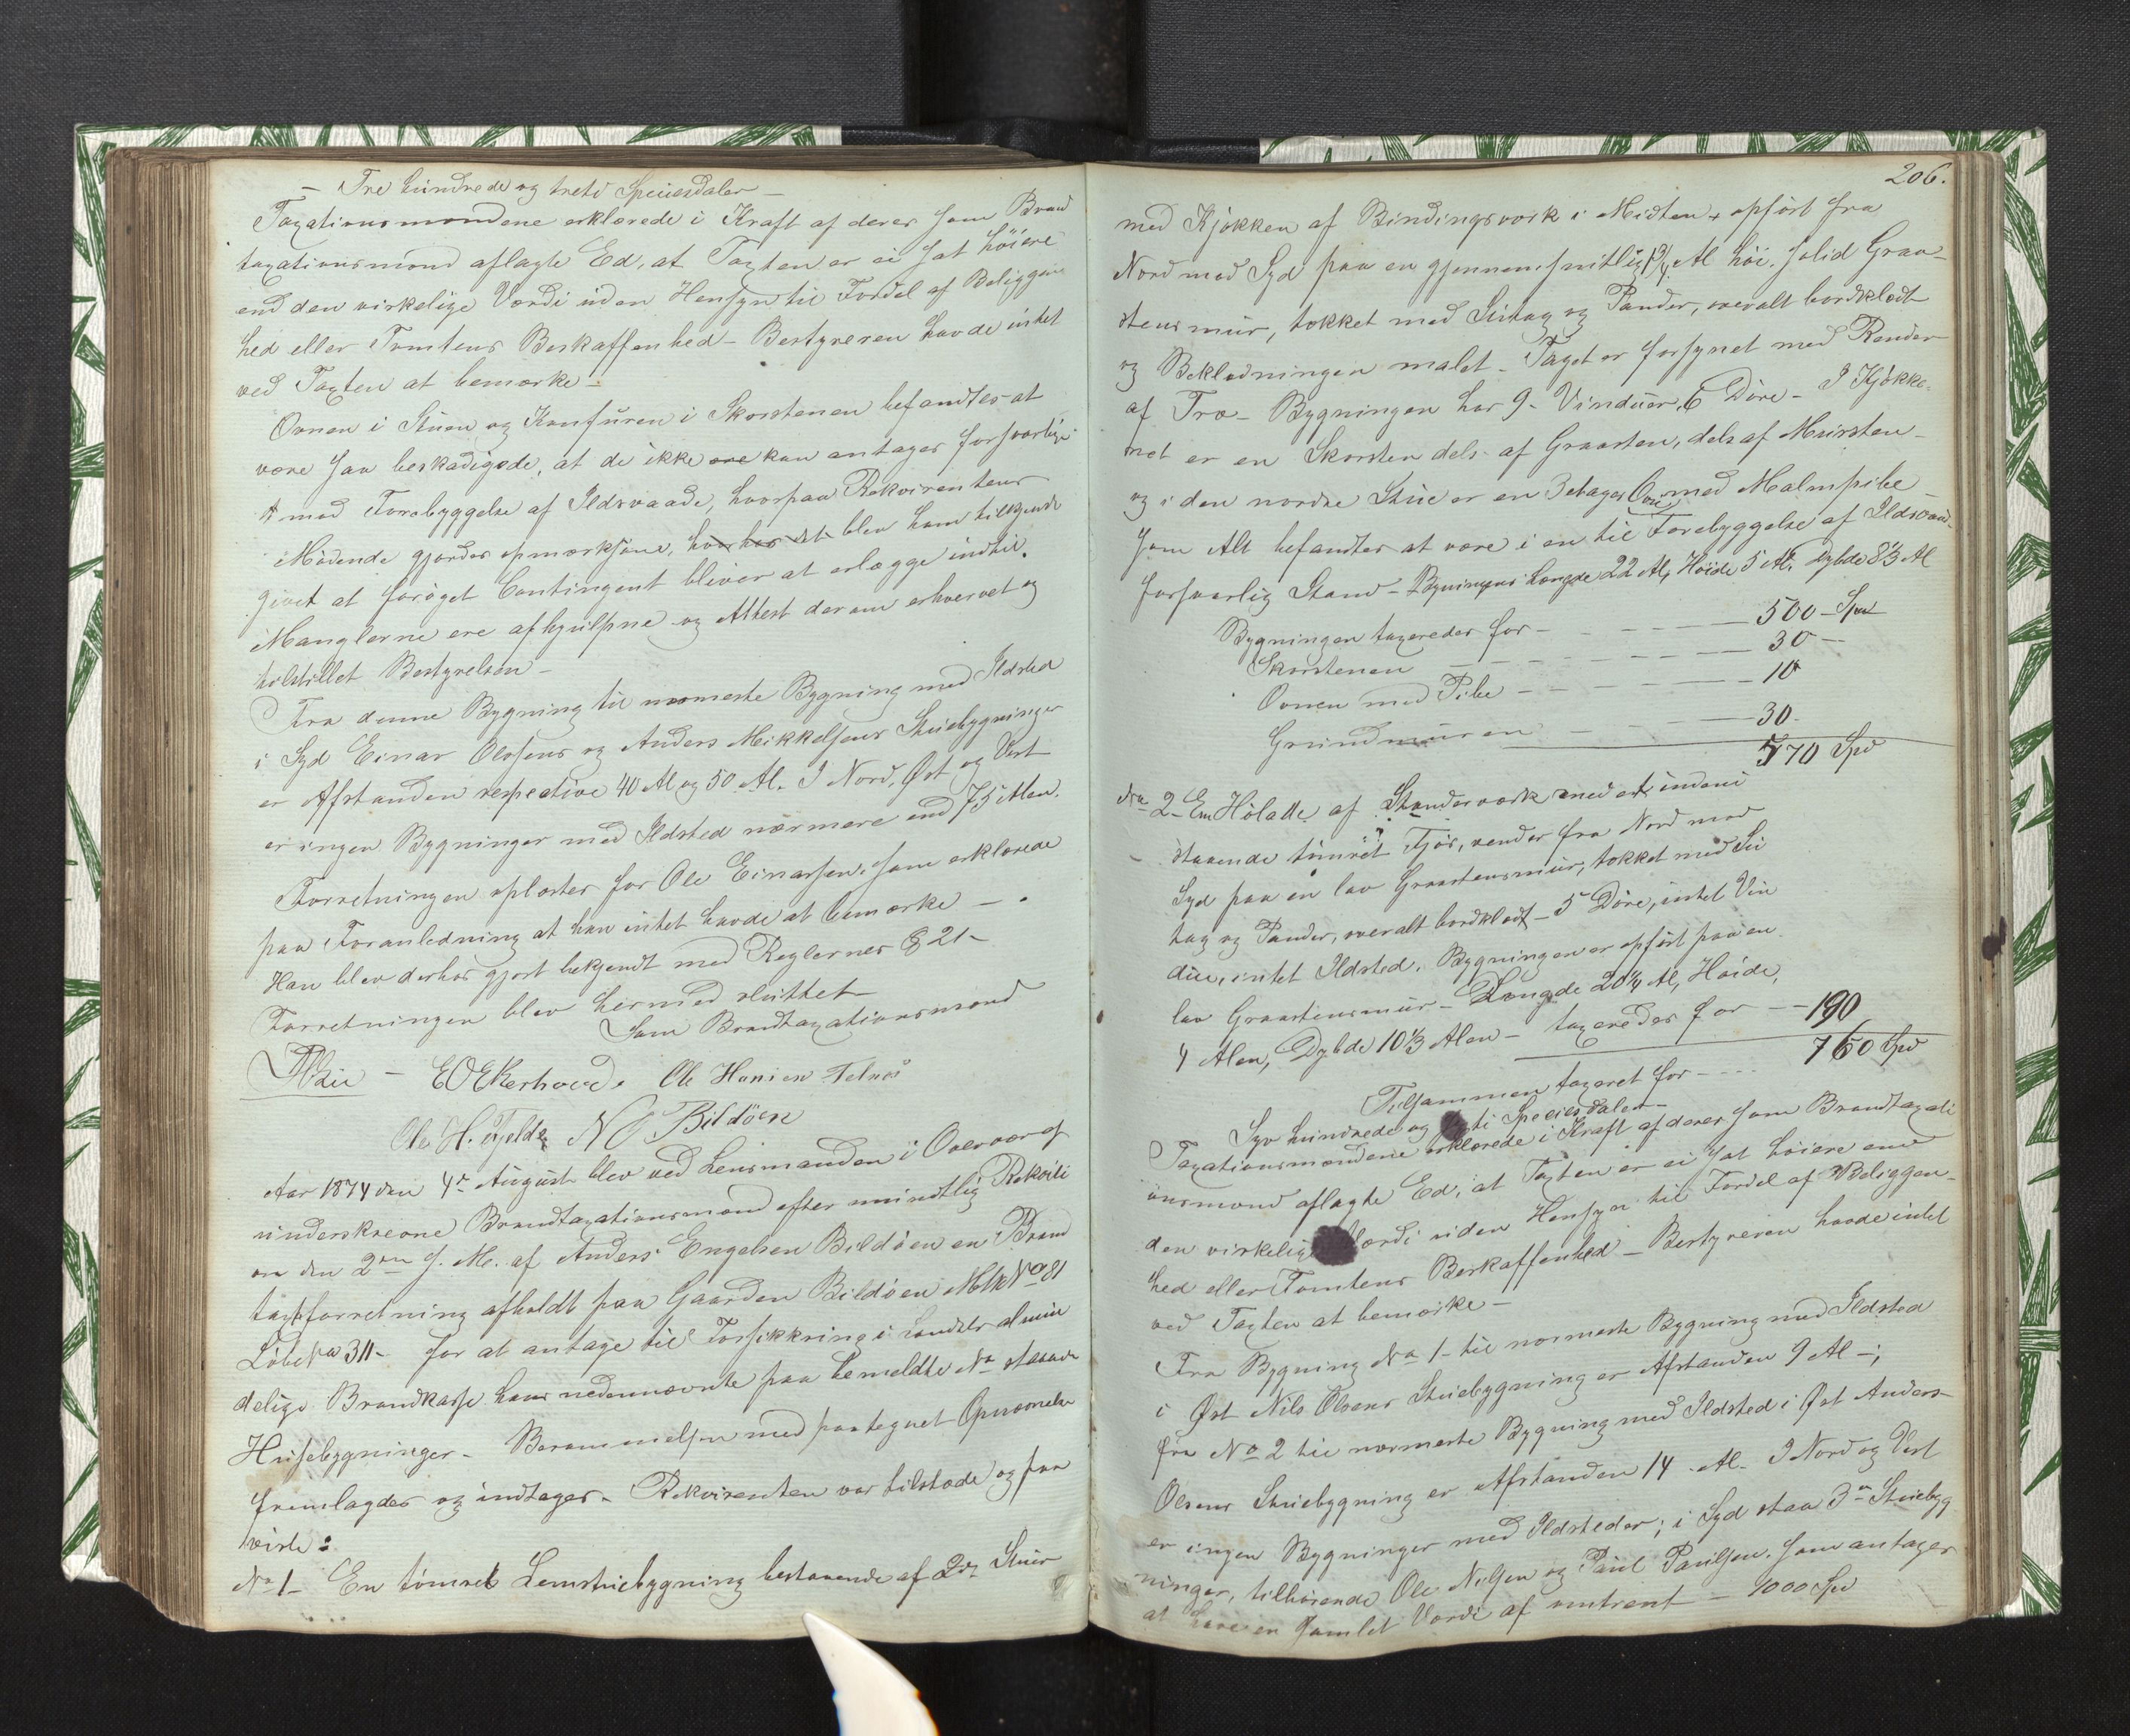 – Tre hundrede og treti Speciesdaler –
Taxationsmændene erklærede i Kraft af deres som Brand
taxationsmænd aflagte Ed, at Taxten er ei sat høiere
end den virkelige Værdi uden Hensyn til Fordel af Beliggen
hed eller Tomtens Beskaffenhed – Bestyreren havde intet
ved Taxten at bemærke.
Ovnen i Stuen og Komfuren i Skorstenen befandtes at
være saa beskadigede, at de ikke ere kan antages forsvarlige
mod Forebyggelse af Ildsvaade, hvorpaa Rekvirentens
Mødende gjordes opmærksom, hvorhos det blev ham tilkjende
givet at forøget Contingent bliver at erlægge indtil
Manglerne ere afhjulpne og Attest derom erhvervet og
tilstillet Bestyrelsen –
Fra denne Bygning til nærmeste Bygning med Ildsted
i Syd Einar Olsens og Anders Mikkelsens Stuebygninger
er Afstanden respective 40 Al og 50 Al. I Nord, Øst og Vest
er ingen Bygninger med Ildsted nærmere end 75 Alen.
Forretningen oplæstes for Ole Einarsen, som erklærede
paa Foranledning at han intet havde at bemærke –
Han blev derhos gjort bekjendt med Reglernes § 21 –
Forretningen blev hermed sluttet
Som Brandtaxationsmænd
– E O Ekerhovd. Ole Hansen Telnes
Ole H. N O Bildøen
Aar 1874 den 4de August blev ved Lensmanden i Overvær af
underskrevne Brandtaxationsmænd efter mundtlig Rekvisi
on den 2den d. M. af Anders Engelsen Bildøen en Brand
taxtforretning afholdt paa Gaarden Bildøen Mtk No 81
Løbe No 311 – for at antage til Forsikkring i Landets almin
delige Brandkasse hans nedennævnte paa bemeldte No staaende
Husebygninger – Berammelsen med paategnet Opnævnelse
fremlagdes og indtages. Rekvirenten var tilstæde og paa
viste:
No 1 – En tømret Lemstuebygning bestaaende af 2de Stuer
206.
med Kjøkken af Bindingsverk i Midten, opført fra
Nord mod Syd paa en gjennemsnitlig 1 3/4 Al høi, solid Graa-
stensmur, tækket med Sutag og Pander, overalt bordklædt
og Beklædningen malet – Taget er forsynet med Render
af Træ – Bygningen har 9 – Vinduer, 6 Døre – I Kjøkke-
net er en Skorsten dels af Graasten, dels af Mursten –
og i den nordre Stue er en 3 etages Ovn med Malmpibe
som Alt befandtes at være i en til Forebyggelse af Ildsvaade
forsvarlig Stand – Bygningens Længde 22 Al, Høide 5 Al, Dybde 8 1/3 Al
Bygningen taxeredes for – 500 – Spd
Skorstenen – 30 –
Ovnen med Pibe – 10
Grundmuren – 30 –
570 Spd
No 2 – En Hølade af Standerværk med et indeni
staaende tømret Fjøs, vender fra Nord mod
Syd paa en lav Graastensmur, tækket med Su
tag og Pander, overalt bordklædt – 5 Døre, intet Vin
due, intet Ildsted. Bygningen er opført paa en
lav Graastensmur – Længde 20 1/4 Al, Høide,
4 Alen, Dybde 10 1/3 Alen – taxeredes for – 190
Tilsammen taxeret for – 760 Spd
Syv hundrede og Speciesdaler –
Taxationsmændene erklærede i Kraft af deres som Brandtaxati
onsmænd aflagte Ed, at Taxten er ei sat høiere end
den virkelige Værdi uden Hensyn til Fordel af Beliggen-
hed eller Tomtens Beskaffenhed – Bestyreren havde intet
ved Taxten at bemærke –
Fra Bygning No 1 – til nærmeste Bygning med Ildsted
i Øst Nils Olsens Stuebygning er Afstanden 9 Al –;
fra No 2 til nærmeste Bygning med Ildsted i Øst Anders
Olsens Stuebygning er Afstanden 14 Al – I Nord og Vest
er ingen Bygninger med Ildsteder; i Syd staa 3de Stuebyg
ninger, tilhørende Ole Nilsen og Paul Paulsen, som antages
at have en samlet Værdi af omtrent – 1000 Spd